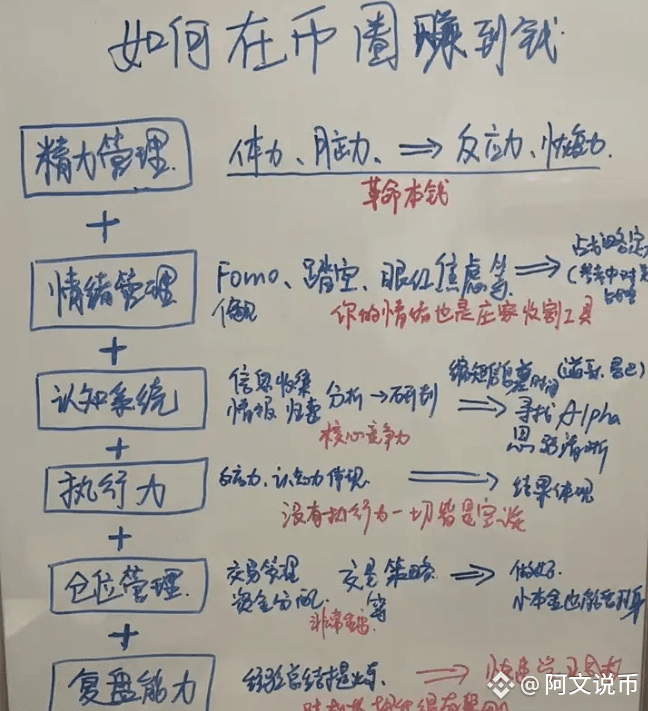 如何在币圈赚到钱
精力管理 体力、脑力、⇒ 反应力、恢复力
革命本钱
+
情绪管理 Fomo、踏空、眼红焦虑等 ⇒
偏见 你的情绪也是庄家收割工具
+
认知系统 信息收集 分析→研判 ⇒ 寻找Alpha
情报 归案 核心竞争力 思路清晰
+
执行力 反应力、认知力体现 ⇒ 结果体现
没有执行力一切皆是空谈
+
仓位管理 交易管理 交易策略 ⇒ 做好
资金分配 等 小本金也能翻身
非常重要
+
复盘能力 经验总结提炼 ⇒
@阿文说币